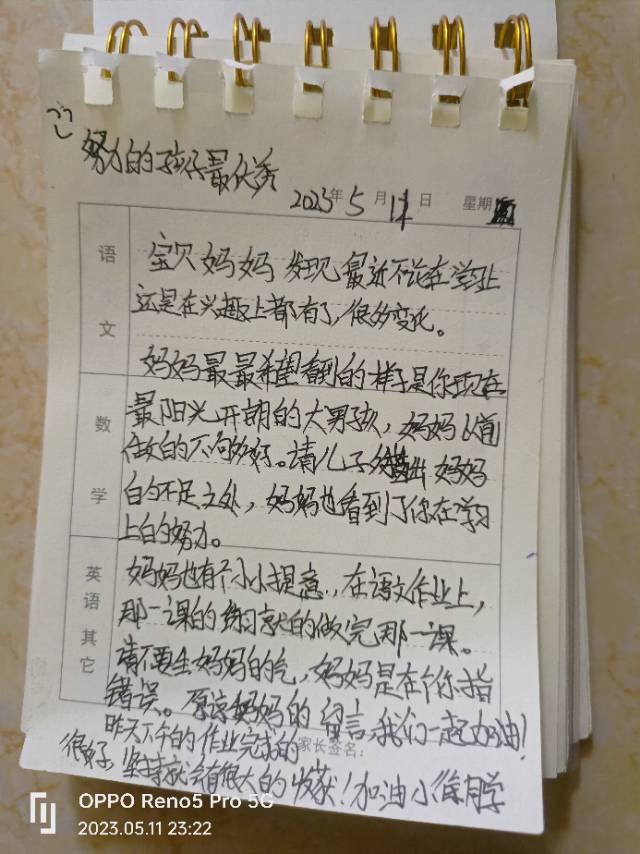 努力的孩子最优秀
2023年5月11日 星期四
语文
宝贝妈妈发现最近不论在学习上
还是在兴趣上都有了,很多变化。
妈妈最最希望看到的样子是你现在
数学
最阳光开朗的大男孩,妈妈以前
做的不够好。请儿子多指出妈妈
的不足之处,妈妈也看到了你在学习
上的努力。
英语其它
妈妈也有个小小提意,在语文作业上,
那一课的练习就的做完那一课。
请不要生妈妈的气,妈妈是在你指
错误。原谅妈妈的留言,我们一起加油!
家长签名:
昨天下午的作业完成的
很好,坚持就会有很大的收获!加油小徐同学
OPPO Reno5 Pro 5G
2023.05.11 23:22